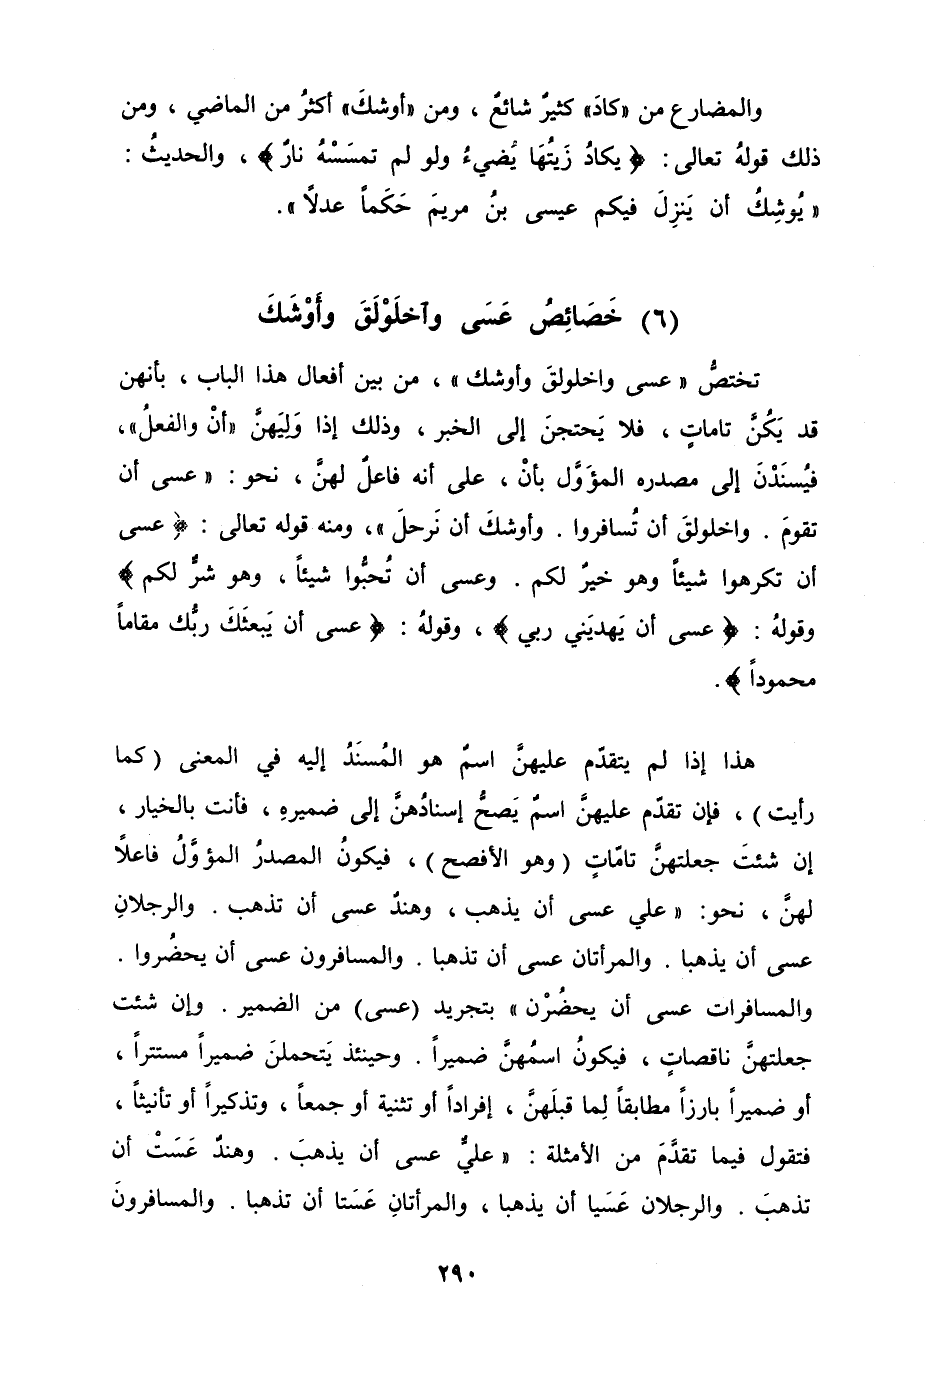 والمضارع من «كادَ» كثيرٌ شائعٌ ، ومن «أوشكَ» أكثرُ من الماضي ، ومن
ذلك قولهُ تعالى : ﴿ يكادُ زَيتُهَا يُضيءُ ولو لم تمسَسْهُ نارٌ ﴾ ، والحديثُ :
« يُوشِكُ أن يَنزِلَ فيكم عيسى بنُ مريمَ حَكَماً عدلاً ».
(٦) خَصَائِصُ عَسَى وآخلَوْلَقَ وأَوْشَكَ
تختصُّ « عسى واخلولقَ وأوشك » ، من بين أفعال هذا الباب ، بأنهن
قد يَكُنَّ تاماتٍ ، فلا يَحتجنَ إلى الخبر ، وذلك إذا وَلِيَهنَّ «أنْ والفعلُ»،
فيُسنَدْنَ إلى مصدره المؤوَّل بأنْ ، على أنه فاعلٌ لهنَّ ، نحو : « عسى أن
تقومَ . واخلولقَ أن تُسافروا . وأوشكَ أن نَرحلَ »، ومنه قوله تعالى : ﴿ عسى
أن تكرهوا شيئاً وهو خيرٌ لكم . وعسى أن تُحبُّوا شيئاً ، وهو شرٌّ لكم ﴾
وقولهُ : ﴿ عسى أن يَهديَني ربي ﴾ ، وقولهُ : ﴿ عسى أن يَبعثَكَ ربُّك مقاماً
محموداً ﴾ .
هذا إذا لم يتقدّم عليهنَّ اسمٌ هو المُسنَدُ إليه في المعنى ( كما
رأيت ) ، فإن تقدّم عليهنَّ اسمٌ يَصحُّ إسنادُهنَّ إلى ضميرهِ ، فأنت بالخيار ،
إن شئتَ جعلتهنَّ تامّاتٍ ( وهو الأفصح ) ، فيكونُ المصدرُ المؤوَّلُ فاعلاً
لهنَّ ، نحو: « علي عسى أن يذهب ، وهندٌ عسى أن تذهب . والرجلانِ
عسى أن يذهبا . والمرأتان عسى أن تذهبا . والمسافرون عسى أن يحضُروا .
والمسافرات عسى أن يحضُرْن » بتجريد (عسى) من الضمير . وإن شئت
جعلتهنَّ ناقصاتٍ ، فيكونُ اسمُهنَّ ضميراً . وحينئذ يَتحملنَ ضميراً مستتراً ،
أو ضميراً بارزاً مطابقاً لِما قبلَهنَّ ، إفراداً أو تثنية أو جمعاً ، وتذكيراً أو تأنيثاً ،
فتقول فيما تقدَّمَ من الأمثلة : « عليٌّ عسى أن يذهبَ . وهندٌ عَسَتْ أن
تذهبَ . والرجلان عَسَيا أن يذهبا ، والمرأتانِ عَسَتا أن تذهبا . والمسافرونَ
٢٩٠